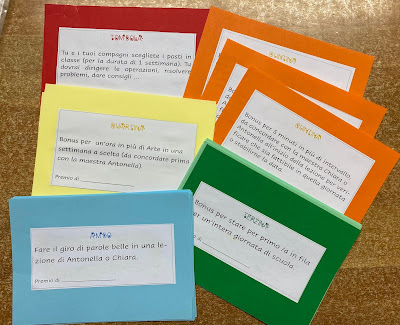 Tu e i tuoi compagni scegliete i posti in
classe (per la durata di 1 settimana). Tu
dovrai dirigere le operazioni, risolvere
problemi, dare consigli ...
Bonus per un'ora in più di Arte in una
settimana a scelta (da concordare prima
con la maestra Antonella).
Premio di
Bonus per 5 minuti in più di intervallo,
da concordare con la maestra Chiara o
Antonella all'inizio della lezione per veri-
ficare che sia fattibile in quella giornata
o stabilirne la data.
Fare il giro di parole belle in una le-
zione di Antonella o Chiara.
Premio di
Bonus per stare per primo /a in fila
per un'intera giornata di scuola.
di